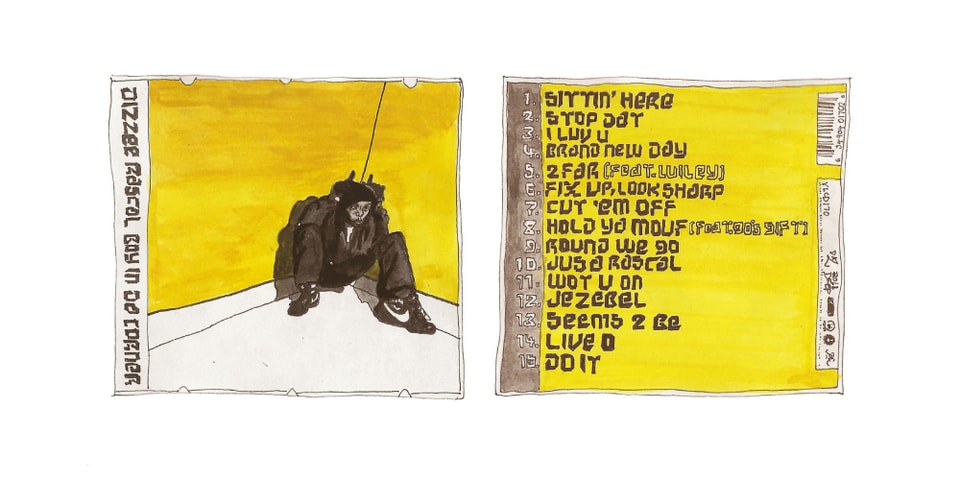 DIZZEE RASCAL BOY IN DA CORNER
1. SITTIN' HERE
2. STOP DAT
3. I LUV U
4. BRAND NEW DAY
5. 2 FAR (FEAT. WILEY)
6. FIX UP, LOOK SHARP
7. CUT 'EM OFF
8. HOLD YA MOUF (FEAT. GOD'S GIFT)
9. ROUND WE GO
10. JUS A RASCAL
11. WOT U ON
12. JEZEBEL
13. SEEMS 2 BE
14. LIVE O
15. DO IT
XLCD170